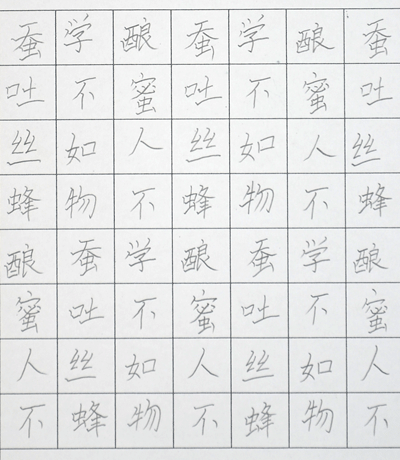 蚕吐丝蜂酿蜜人不
学不如物蚕吐丝蜂
酿蜜人不学不如物
蚕吐丝蜂酿蜜人不
学不如物蚕吐丝蜂
酿蜜人不学不如物
蚕吐丝蜂酿蜜人不